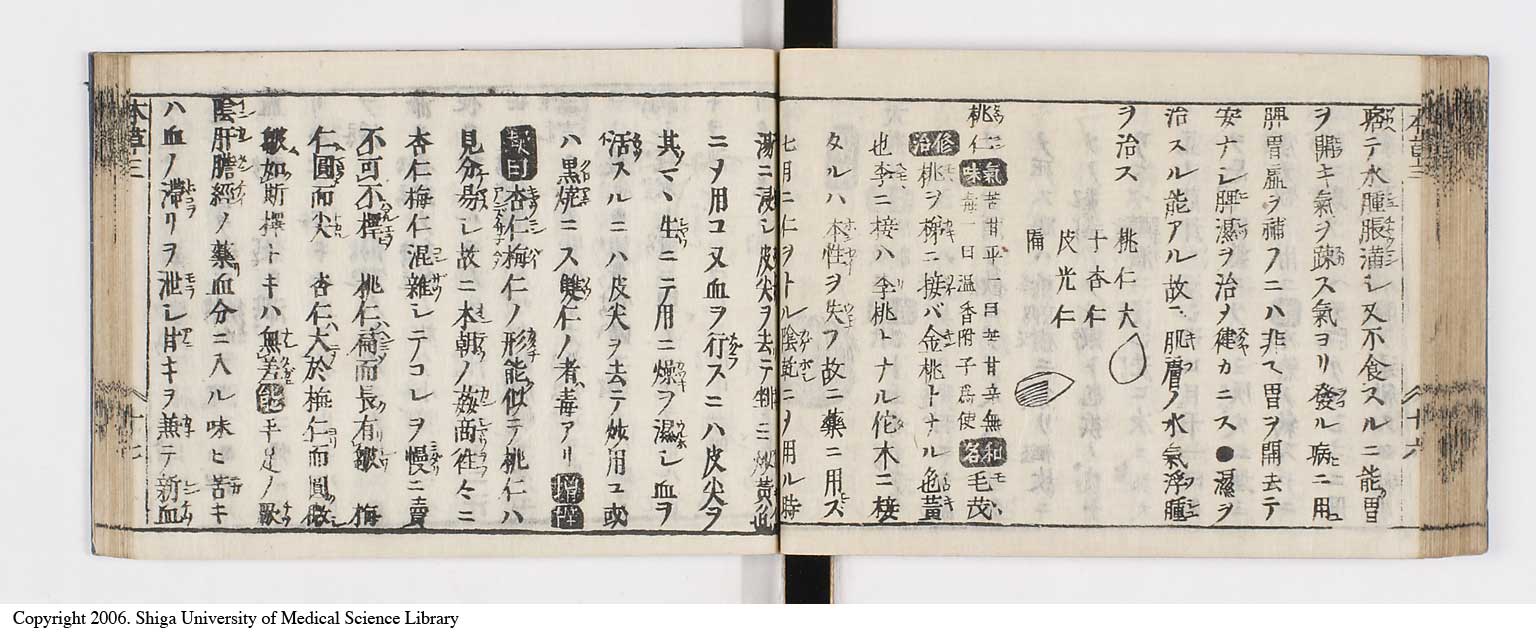 本草三 十六
テ水腫脹滿シ又不食スルニ能胃
ヲ開キ氣ヲ疎ス氣ヨリ發ル病ニ用
脾胃虛ヲ補フニハ非て胃ヲ開去テ
安ナシ脾濕ヲ治ヲ健カニス●濕ヲ
治スル能アル故ニ肌膚ノ水氣浮腫
ヲ治ス
桃仁大
干杏仁
皮光仁
桃仁 氣味 苦甘平一曰苦甘辛無毒一曰温香附子爲使 和名 毛茂
修治 桃ヲ柳ニ接バ金桃トナル也黃
也李ニ接ハ李桃トナル佗木ニ接
タルハ本性ヲ失フ故ニ藥ニ用ズ
七月ニ仁ヲトル陰乾ニヲ用ル時
湯ニ浸シ皮尖ヲ去テ麩ニ炒黃色
ニヲ用コ又血ヲ行スニハ皮尖ヲ
其マヽ生ニテ用ニ燥ヲ濕シ血ヲ
活スルニハ皮尖ヲ去テ炒用ユ或
ハ黒焼ニス雙仁ノ者毒アリ 增釋
杏仁梅仁ノ形能似テ桃仁ハ
見分易シ故ニ本朝ノ姦商徃々ニ
杏仁梅仁混雜シテコレヲ慢ニ賣
不可不擇 桃仁扁而長有皺 梅
仁圓而尖 杏仁大於梅仁而圓微
皺如斯擇トキハ無差 能 平足ノ厥
陰肝膽經ノ藥血分ニ入ル味ヒ苦キ
ハ血ノ滯リヲ泄シ甘キヲ兼テ新血
本草三 十七